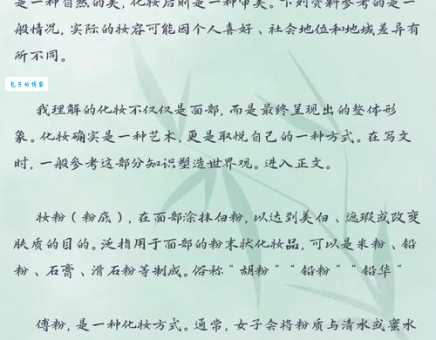 是一种自然的美，化妆后则是一种审美。下列资料参考的是一
般情况，实际的妆容可能因个人喜好、社会地位和地域差异有
所不同。
我理解的化妆不仅仅是面部，而是最终呈现出的整体形
象。化妆确实是一种艺术，更是取悦自己的一种方式。在写文
时，一般参考这部分知识塑造世界观。进入正文。
妆粉（粉底），在面部涂抹白粉，以达到美白、遮瑕或改变
肤质的目的。泛指用于面部的粉末状化妆品，可以是米粉、铅
粉、石膏、滑石粉等制成。俗称“胡粉”“铅粉”“铅华”
傅粉，是一种化妆方式。通常，女子会将粉质与清水或蜜水